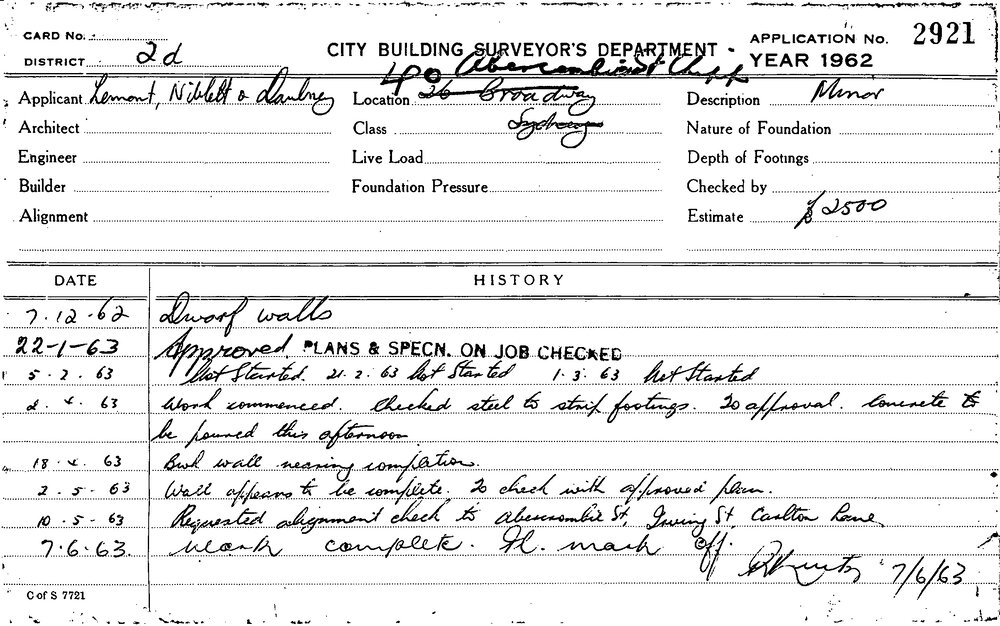 CARD No.
DISTRICT 2d
CITY BUILDING SURVEYOR'S DEPARTMENT -
APPLICATION No. 2921
YEAR 1962
40 Abercrombie St Chipp
Applicant Lemont, Niblett & Daubney
Location 26 Broadway
Description Minor
Architect
Class Sydney
Nature of Foundation
Engineer
Live Load
Depth of Footings
Builder
Foundation Pressure
Checked by
Alignment
Estimate £ 2500
DATE HISTORY
7.12.62 Dwarf walls
22-1-63 Approved PLANS & SPECN. ON JOB CHECKED
5.2.63 Not Started. 21.2.63 Not Started 1.3.63 Not Started
2.4.63 Work commenced. Checked steel to strip footings. To approval. Concrete to
be poured this afternoon
18.4.63 Bwk wall nearing completion.
2.5.63 Wall appears to be complete. To check with approved plan.
10.5.63 Requested alignment check to Abercrombie St, Irving St, Carlton Lane
7.6.63. Work complete. Pl. mark off.
7/6/63
C of S 7721